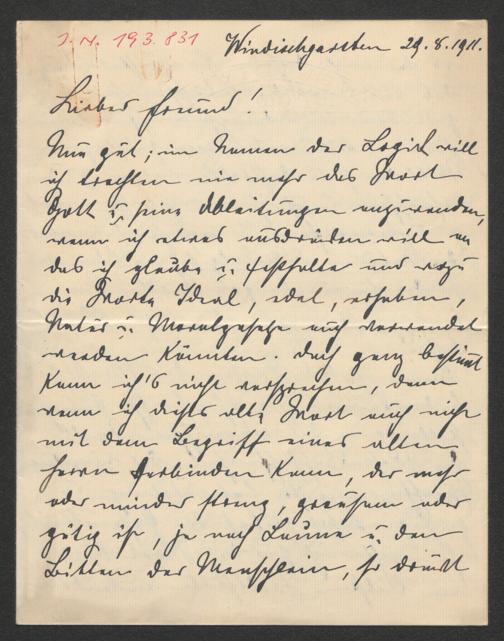 I. N. 193.831
Windischgarsten 29.8.1911.
Lieber Freund!
Nun gut; im Namen der Logik will
ich trachten nie mehr das Wort
Gott u. seine Ableitungen anzuwenden,
wenn ich etwas ausdrücken will an
das ich glaube u. festhalte und wozu
die Worte Ideal, edel, erhaben,
Natur u. Moralgesetze auch verwendet
werden könnten. Doch ganz bestimt
kann ich's nicht versprechen, denn
wenn ich dieses alte Wort auch nicht
mit dem Begriff eines alten
Herrn verbinden kann, der mehr
oder minder streng, grausam oder
gütig ist, je nach Laune u. den
Bitten der Menschlein, so drückt